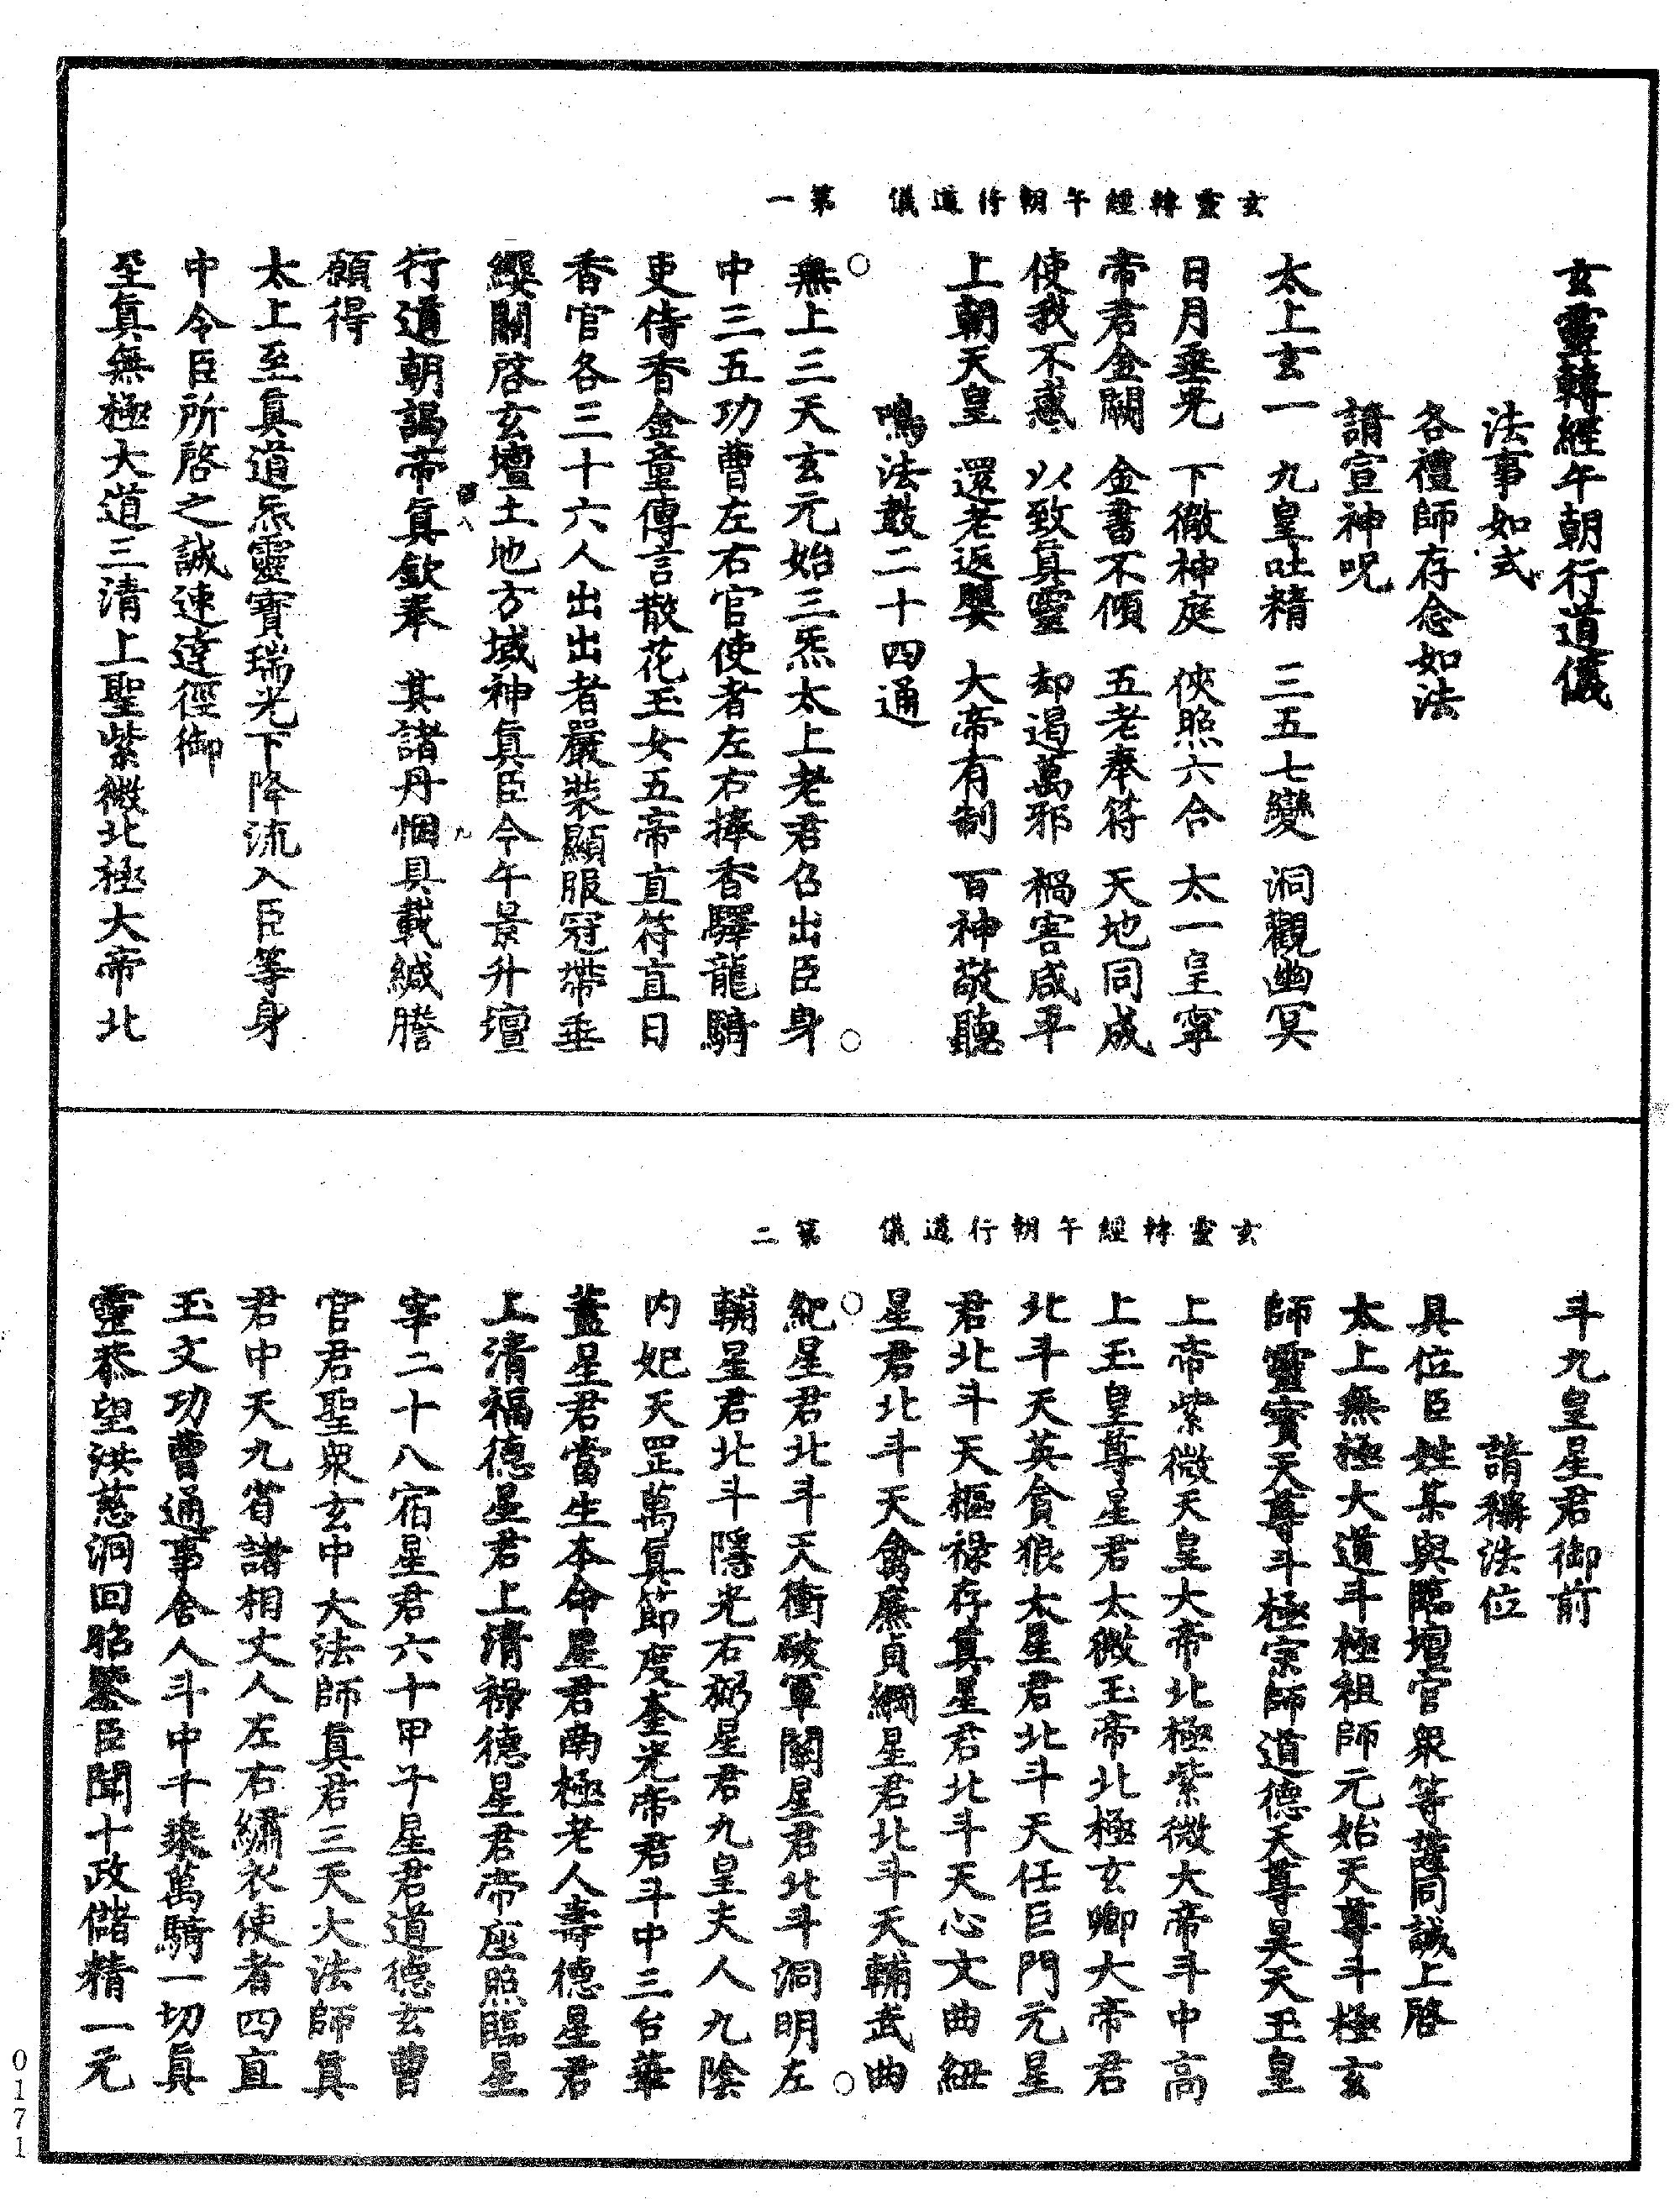 玄靈轉經午朝行道儀　第一
玄靈轉經午朝行道儀
法事如式
各禮師存念如法
請宣神呪
太上玄一　九皇吐精　三五七變　洞觀幽冥
日月垂晃　下徹神庭　俠照六合　太一皇寧
帝君金闕　金書不傾　五老奉符　天地同成
使我不惑　以致真靈　却遏萬邪　禍害咸平
上朝天皇　還老返嬰　大帝有制　百神敬聽
鳴法鼓二十四通
無上三天玄元始三炁太上老君召出臣身
中三五功曹左右官使者左右捧香驛龍騎
吏侍香金童傳言散花玉女五帝直符直日
香官各三十六人出出者嚴裝顯服冠帶垂
纓關啓玄壇土地方域神真臣今午景升壇
行道朝謁帝真欽奉　其諸丹悃具載緘謄
願得
太上至真道炁靈寶瑞光下降流入臣等身
中令臣所啓之誠速達徑御
至真無極大道三清上聖紫微北極大帝北
玄靈轉經午朝行道儀　第二
斗九皇星君御前
請稱法位
具位臣姓某與臨壇官衆等謹同誠上啓
太上無極大道斗極祖師元始天尊斗極玄
師靈寶天尊斗極宗師道德天尊昊天玉皇
上帝紫微天皇大帝北極紫微大帝斗中高
上玉皇尊星君太微玉帝北極玄卿大帝君
北斗天英貪狼太星君北斗天任巨門元星
君北斗天樞祿存真星君北斗天心文曲紐
星君北斗天禽廉貞綱星君北斗天輔武曲
紀星君北斗天衝破軍關星君北斗洞明左
輔星君北斗隱光右弼星君九皇夫人九陰
内妃天罡萬真節度奎光帝君斗中三台華
蓋星君當生本命星君南極老人壽德星君
上清福德星君上清祿德星君帝座照臨星
宰二十八宿星君六十甲子星君道德玄曹
官君聖衆玄中大法師真君三天大法師真
君中天九省諸相丈人左右繡衣使者四直
玉文功曹通事舍人斗中千乘萬騎一切真
靈恭望洪慈洞回昭鑒臣聞十政儲精一元
0171